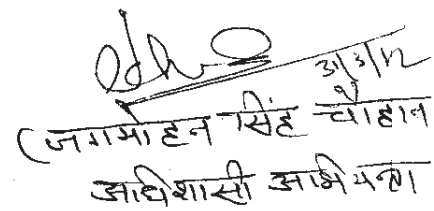 (जगमोहन सिंह चौहान
अधिशासी अभियन्ता